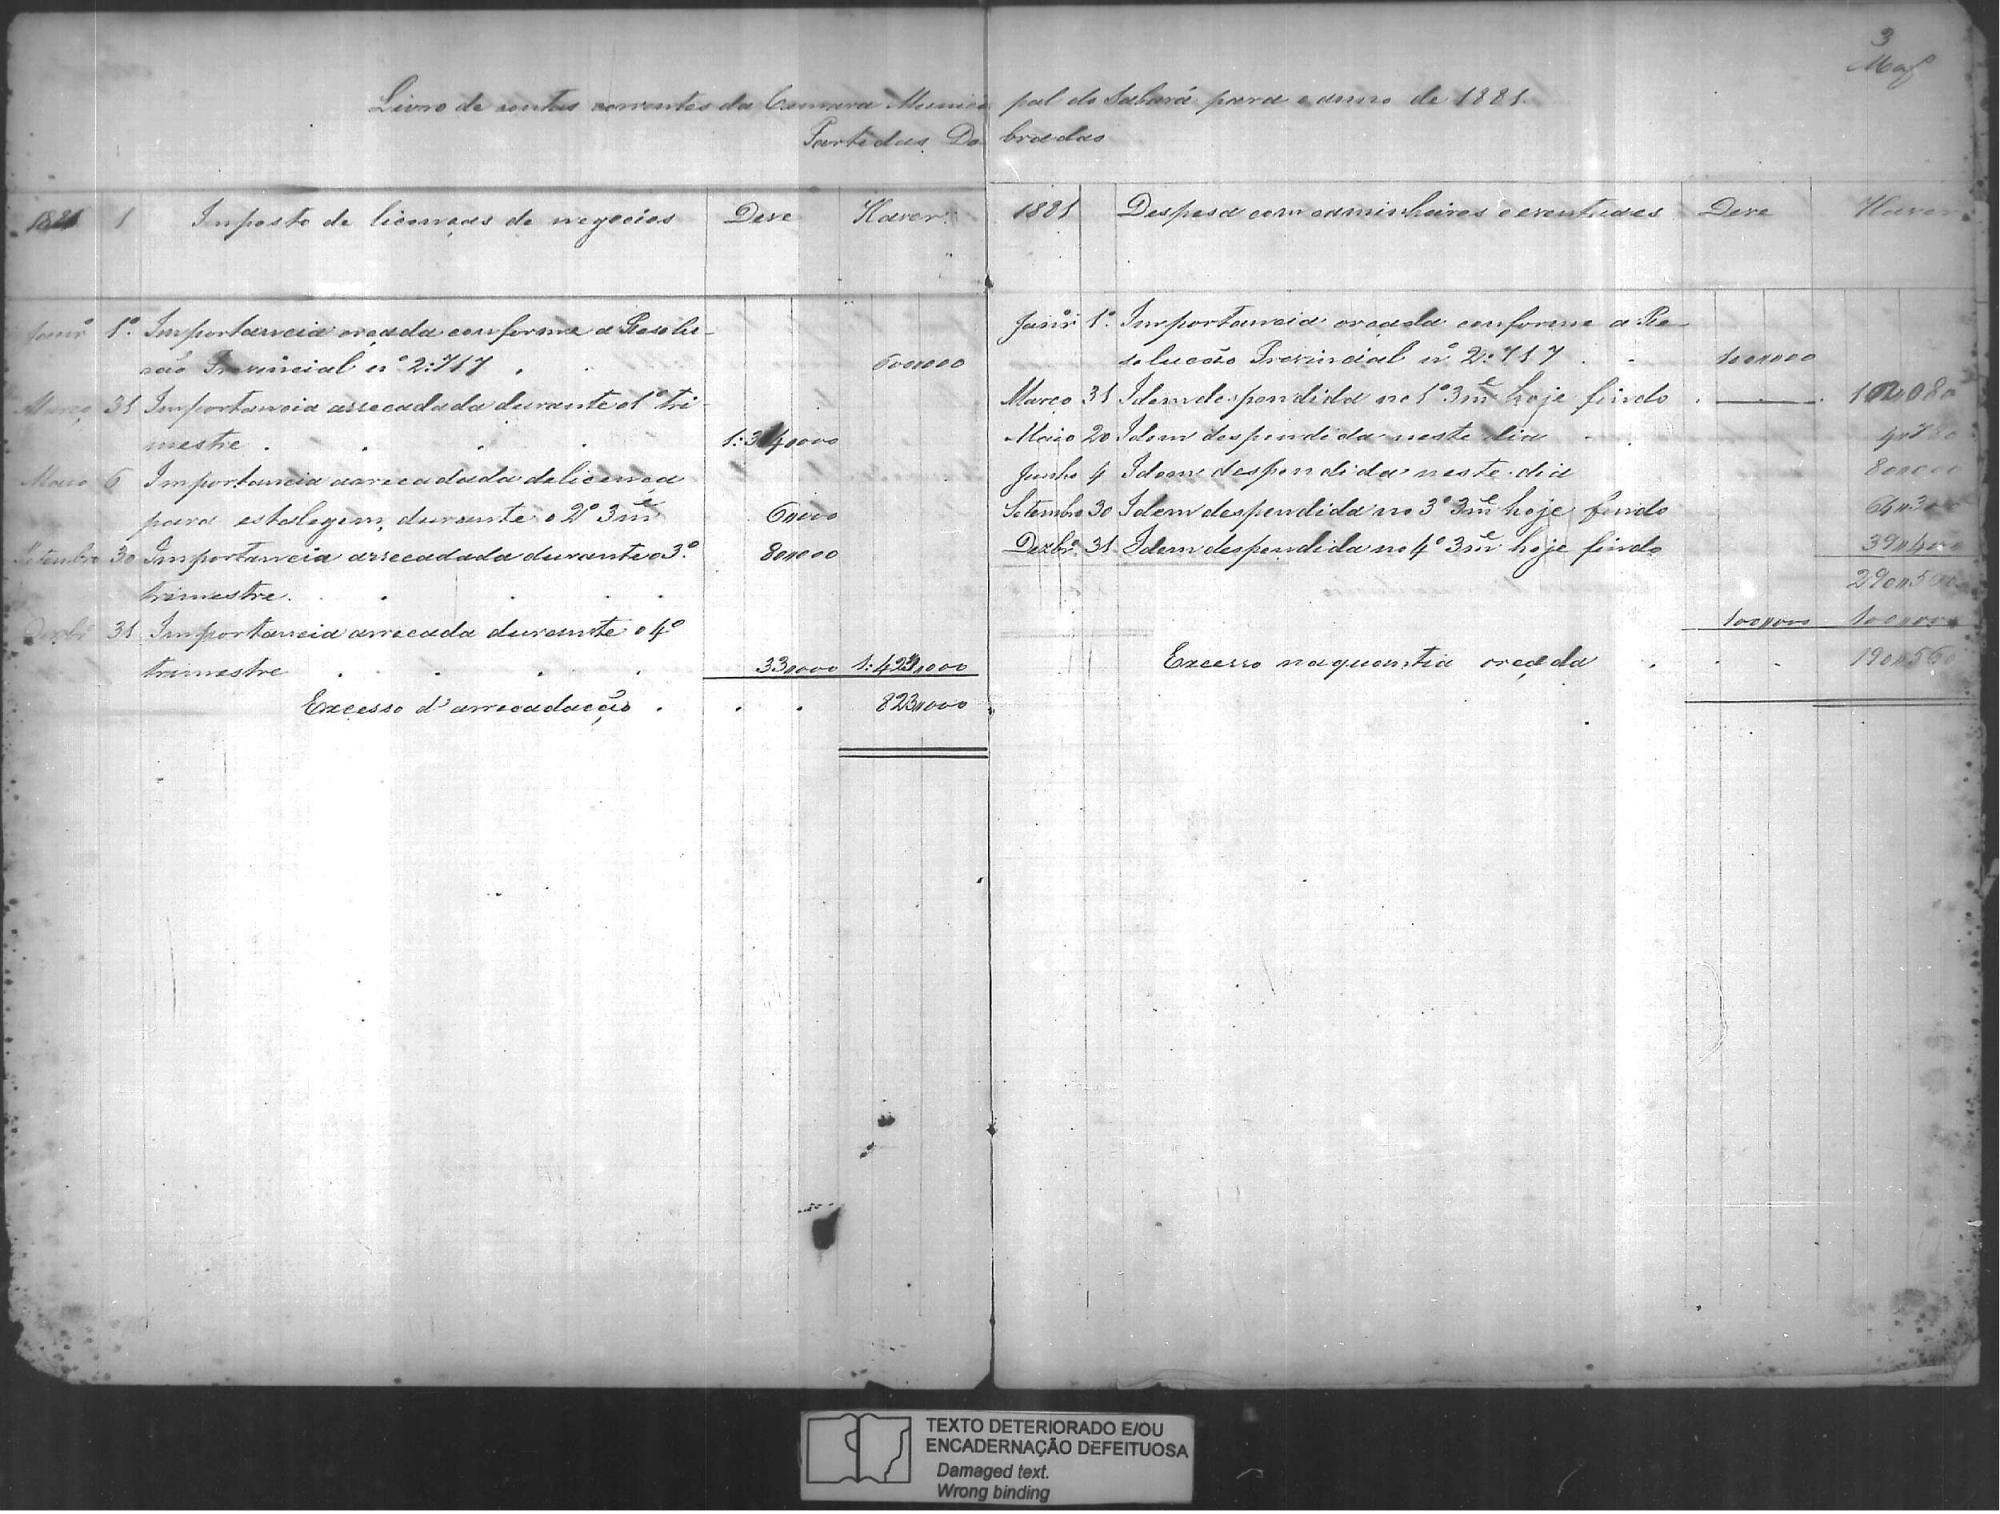 3
Livro de contas correntes da Camara Munici pal do Sabará para o anno de 1881.
Partidas Do bradas
1881 1 Imposto de licenças de negocios Deve Haver
Janrº 1º. Importancia orçada conforme a Resolu-
ção Provincial nº 2:717 . 600$000
Março 31 Importancia arrecadada durante o 1º tri-
mestre . . . . 1:314$000
Maio 6 Importancia aarrecadada de licença
para estalegem, durante o 2º 3mẽ 6$000
Setembro 30 Importancia arrecadada durante o 3º. 80$000
trimestre. . . . .
Dezbrº 31 Importancia arrecada durante o 4º
trimestre . . . . 33$000 1:423$000
Excesso d'arrecadação . . . 823$000
1881 Despesa com caminheiros e eventuaes Deve Haver
Janrº 1º. Importancia orçada conforme a Re-
solução Provincial nº 2:717 . . 100$000
Março 31 Idem despendida no 1º 3mẽ hoje findo . 102$080
Maio 20 Idem despendida neste dia . . 4$780
Junho 4 Idem despendida neste dia 80$000
Setembro 30 Idem despendida no 3º 3mẽ hoje findo 64$300
Dezbrº. 31 Idem despendida no 4º 3mẽ hoje findo 39$400
290$560
100$000 100$000
Excesso na quantia orçada . . . 190$560
TEXTO DETERIORADO E/OU
ENCADERNAÇÃO DEFEITUOSA
Damaged text.
Wrong binding